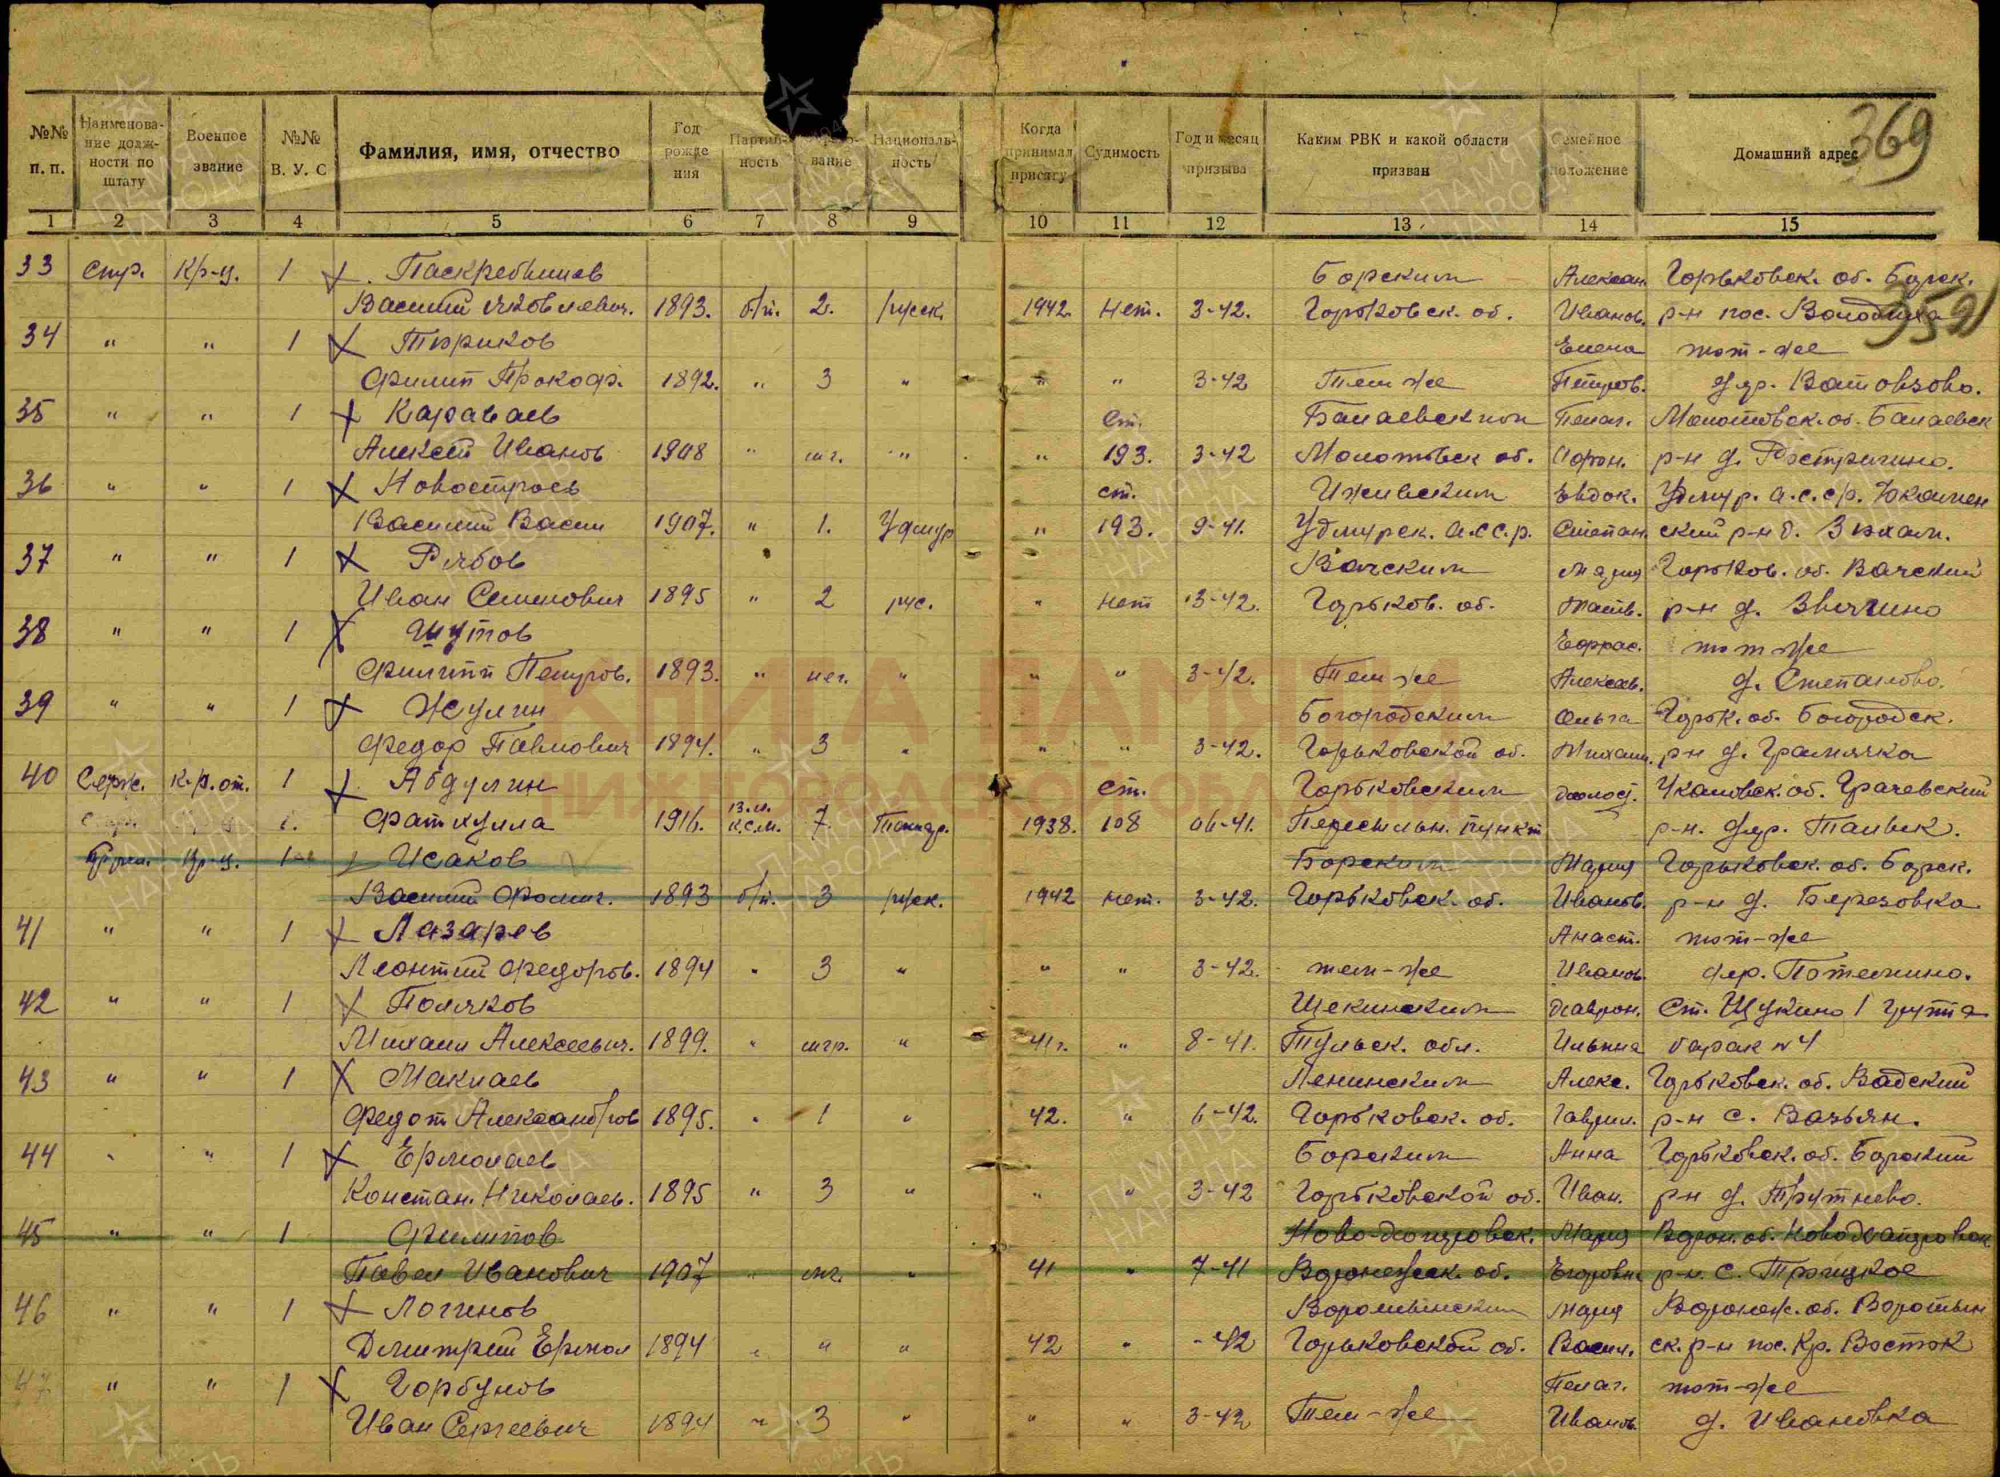 369
№№ п. п. Наименование должности по штату Военное звание №№ В. У. С Фамилия, имя, отчество Год рождения Партийность вание Национальность Когда принимал присягу Судимость Год и месяц призыва Каким РВК и какой области призван Семейное положение Домашний адрес
1 2 3 4 5 6 7 8 9 10 11 12 13 14 15
33 Стр. Кр-ц. 1 Паскребышев Борским Алексан. Горьковск. об. Борск.
Василий Яковлевич. 1893. б/п. 2. русск. 1942. Нет. 3-42. Горьковск. об. Иванов. р-н пос. Володиха
34 " " 1 Тюриков Елена тот-же
Филип Прокоф. 1892. " 3 " " " 3-42 Тем же Петров. дер. Ватомзово.
35 " " 1 Караваев Ст. Балаевским Пелаг. Молотовск. об. Балаевск
Алексей Иванов 1908 " мг. " " 193. 3-42 Молотовск об. р-н д. Востричино.
36 " " 1 Новострось ст. Ижевским Евдок. Удмур. а.с.ср.
Василий Васил 1907. " 1. Удмур " 193. 9-41. Удмурск. а.с.с.р. Степан. ский р-н д.
37 " " 1 Рябов Вачским Мария Горьков. об. Вачский
Иван Семенович 1895 " 2 рус. " нет 3-42. Горьков. об. Матв. р-н д. Звягино
38 " " 1 Шутов тот же
Филипп Петров. 1893. " нег. " " " 3-42. Тем же Алексан. д. Степаново.
39 " " 1 Жулин Богородским Ольга Горьк. об. Богородск.
Федор Павлович 1894. " 3 " " " 3-42. Горьковской об. Михаил. р-н д. Грамячка
40 Серж. К.р.от. 1 Абдулин Ст. Горьковским Чкаловск. об. Грачевский
Фаткулла 1916. в.л.к.с.м. 7. Татар. 1938. 108 06-41. Пересыльн. пункт р-н. дер.
кр-ц. 1 Исаков Борским Мария Горьковск. об. Борск.
Василий Филип. 1893 б/п. 3 русск. 1942 нет. 3-42. Горьковск. об. Иванов. р-н д. Березовка
41 " " 1 Лазарев Анаст. тот-же
Леонтий Федоров. 1894 " 3 " " " 3-42. тем-же Иванов. дер. Потемино.
42 " " 1 Поляков Щекинским Ст. Щукино 1 группа
Михаил Алексеевич. 1899. " мгр. " 41г. " 8-41. Тульск. обл. Ильина барак №4
43 " " 1 Маклаев Ленинским Алекс. Горьковск. об. Вадский
Федот Александров 1895. " 1 " 42. " 6-42. Горьковск. об. Гаврил. р-н с. Вазьян.
44 " " 1 Ермолаев Борским Анна Горьковск. об. Борский
Констан. Николаев. 1895 " 3 " " " 3-42 Горьковской об. Иван. р-н д. Трутнево.
45 " " 1 Филипов Ново-Хоперовск. Мария Ворон. об. Новохоперовск
Павел Иванович 1907 " мг. " 41 " 7-41 Воронежск. об. Егоровн р-н. с. Троицкое
46 " " 1 Логинов Воротынским Мария Воронеж. об. Воротын
Дмитрий Ермол 1894 " " " 42 " -42 Горьковской об. Васил. ск. р-н пос. Кр. Восток
47 " " 1 Горбунов Пелаг. тот-же
Иван Сергеевич 1894 " 3 " " " 3-42 Тем-же Иванов. д. Ивановка
КНИГА ПАМЯТИ
НИЖЕГОРОДСКОЙ ОБЛАСТИ
ПАМЯТЬ НАРОДА